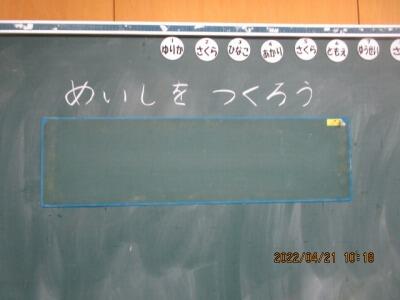 ゆりか さくら ひなこ あかり さくら ともえ ゆうせい さ
めいしを つくろう
2022/04/21 10:18